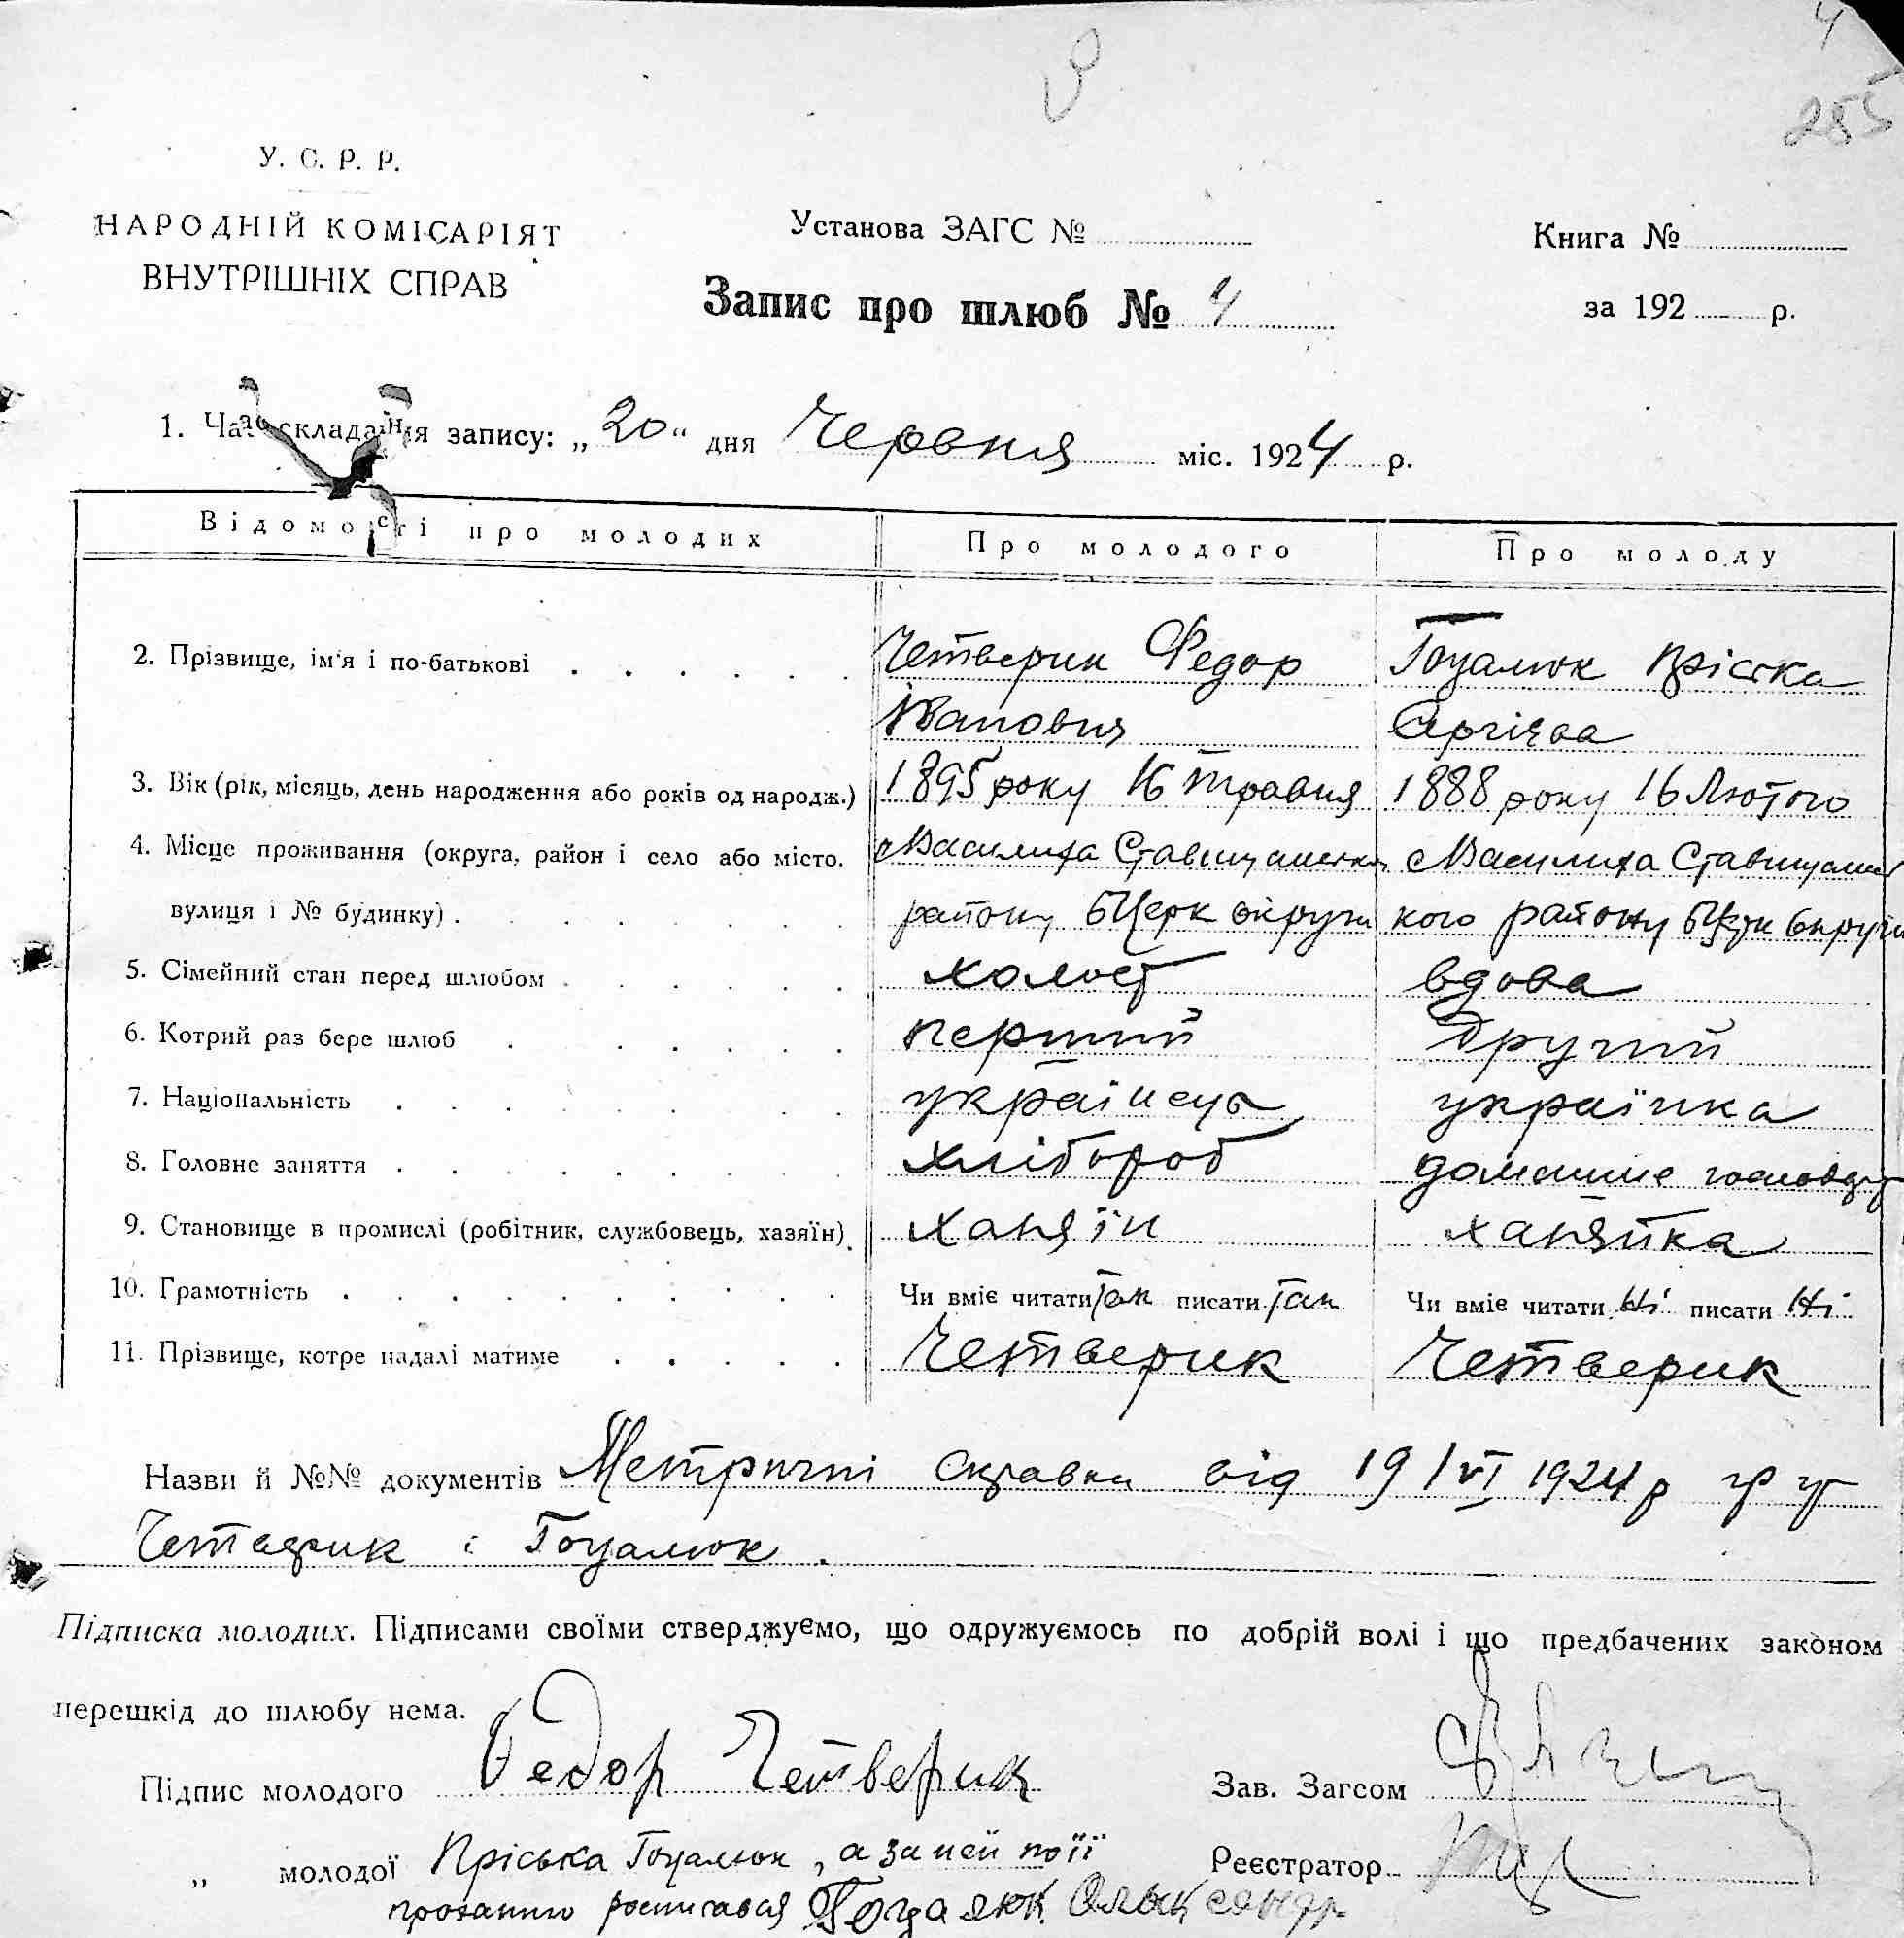 4
285
У. С. Р. Р.
НАРОДНІЙ КОМІСАРІЯТ
ВНУТРІШНІХ СПРАВ
Установа ЗАГС №
Книга №
Запис про шлюб № 4
за 192 р.
1. Час складання запису: „20“ дня Червня міс. 1924 р.
Відомості про молодих Про молодого Про молоду
2. Прізвище, ім'я і по-батькові Четверик Федор Гоцалюк Пріська
Іванович Сергієва
3. Вік (рік, місяць, день народження або років од народж.) 1895 року 16 травня 1888 року 16 Лютого
4. Місце проживання (округа, район і село або місто. Василиха Ставищанськ Василиха Ставищансь
вулиця і № будинку). району БЦерк округи кого району БЦерк округи
5. Сімейний стан перед шлюбом холост вдова
6. Котрий раз бере шлюб перший другий
7. Національність українець українка
8. Головне заняття хлібороб домашнє господар
9. Становище в промислі (робітник, службовець, хазяїн) хазяїн хазяйка
10. Грамотність Чи вміє читати Так писати Так Чи вміє читати Ні писати Ні
11. Прізвище, котре надалі матиме Четверик Четверик
Назви й №№ документів Метричні справки від 19/VI 1924 р гр гр
Четверик і Гоцалюк.
Підписка молодих. Підписами своїми стверджуємо, що одружуємось по добрій волі і що предбачених законом
перешкід до шлюбу нема.
Підпис молодого Федор Четверик Зав. Загсом
„ молодої Пріська Гоцалюк, а за неї по її Реєстратор
проханню росписався Гоцалюк Олександр